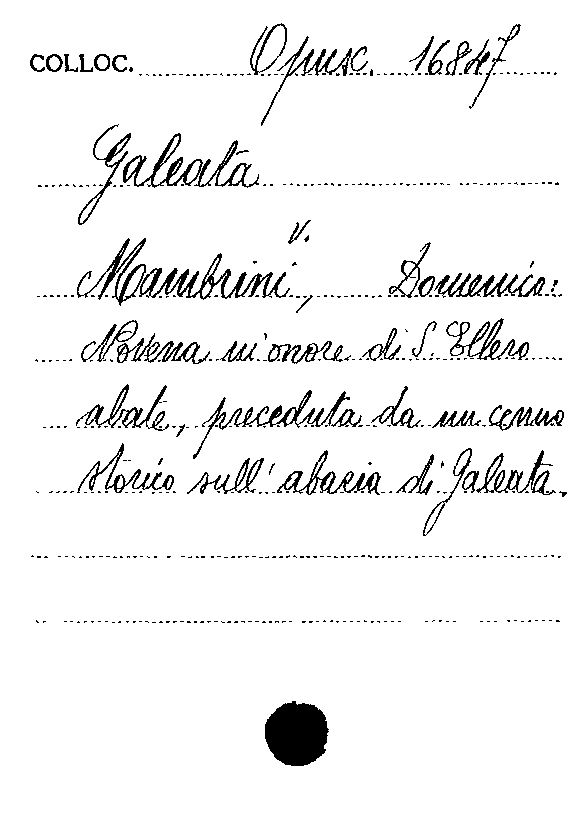 COLLOC. Opusc. 16847
Galeata
v.
Mambrini, Domenico:
Novena in onore di S. Ellero
abate, preceduta da un cenno
storico sull' abazia di Galeata.